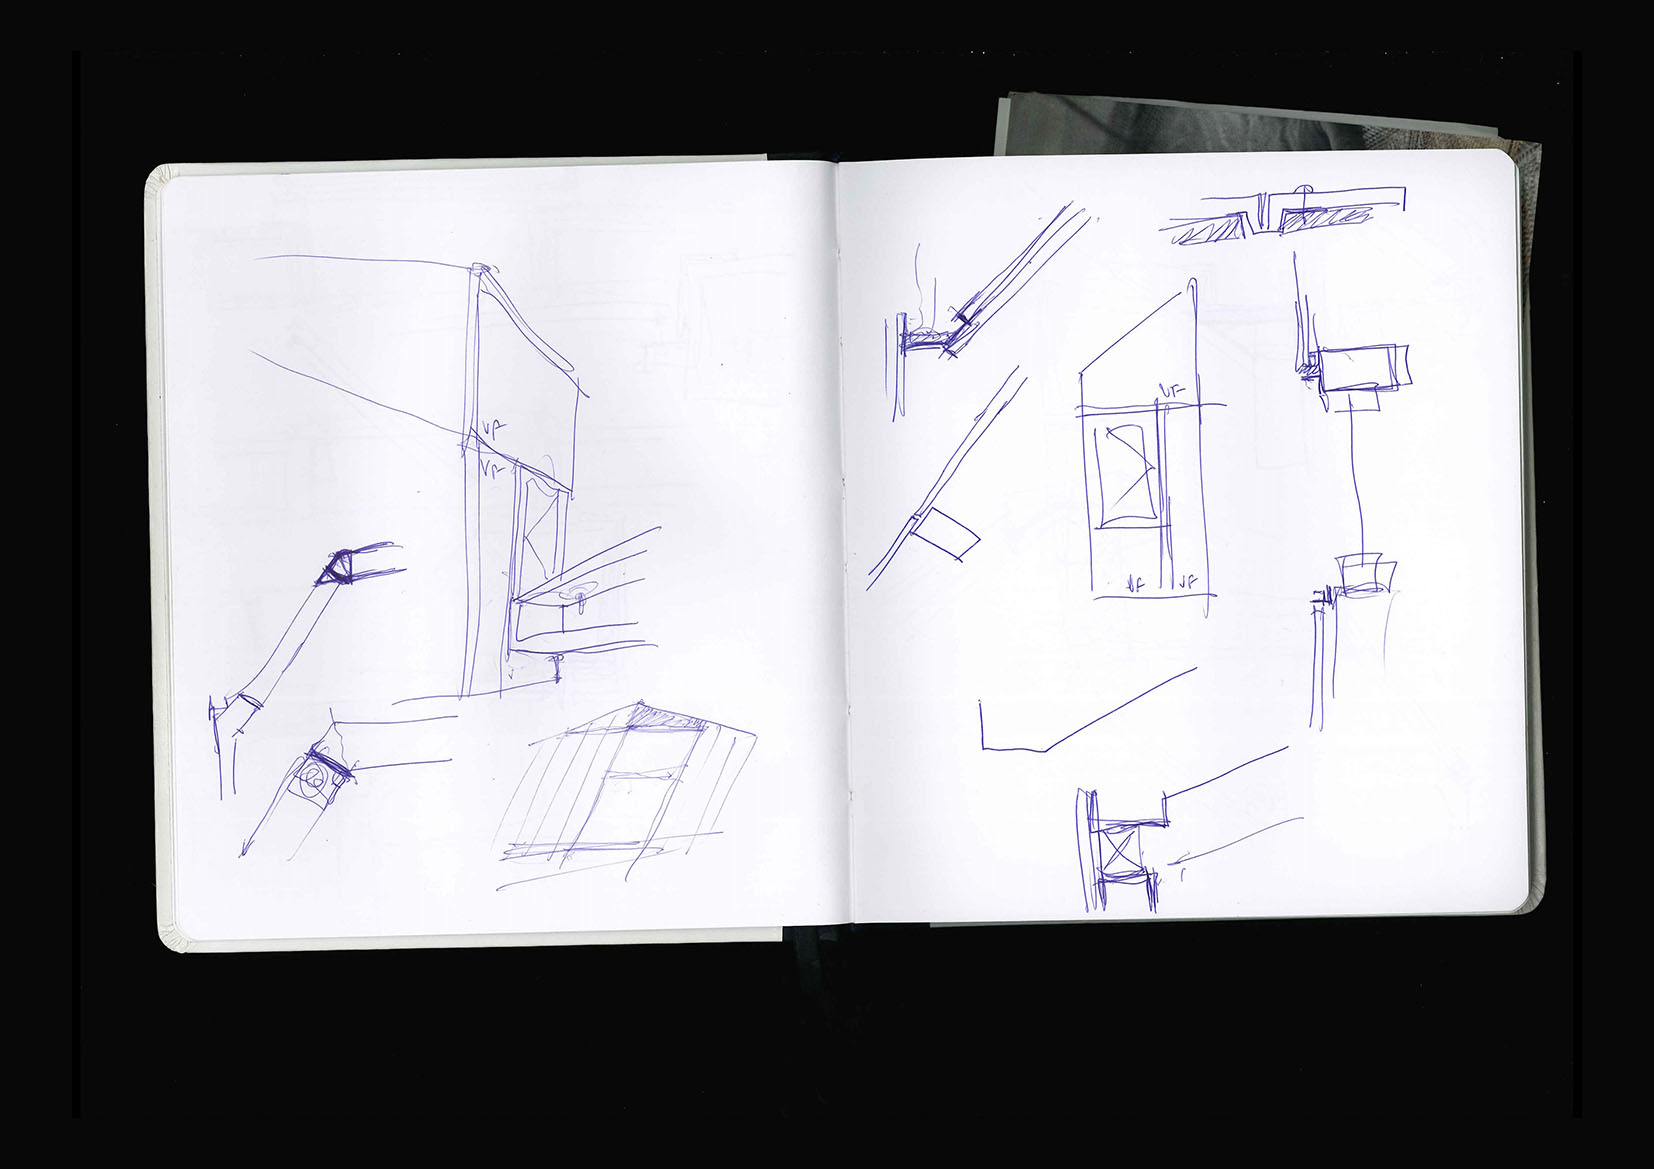 VF
VF
VF
VF
VF